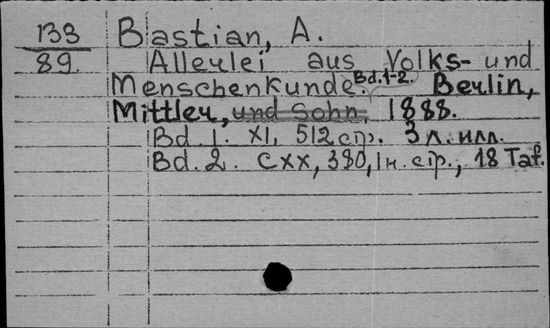 133 Bastian, A.
89. Allerlei aus Volks- und
Menschenkunde. Bd.1-2. Berlin,
Mittler, und Sohn, 1888.
Bd. 1. XI, 512 стр. 3 л. илл.
Bd. 2. CXX, 380, 1 н. стр., 18 Taf.